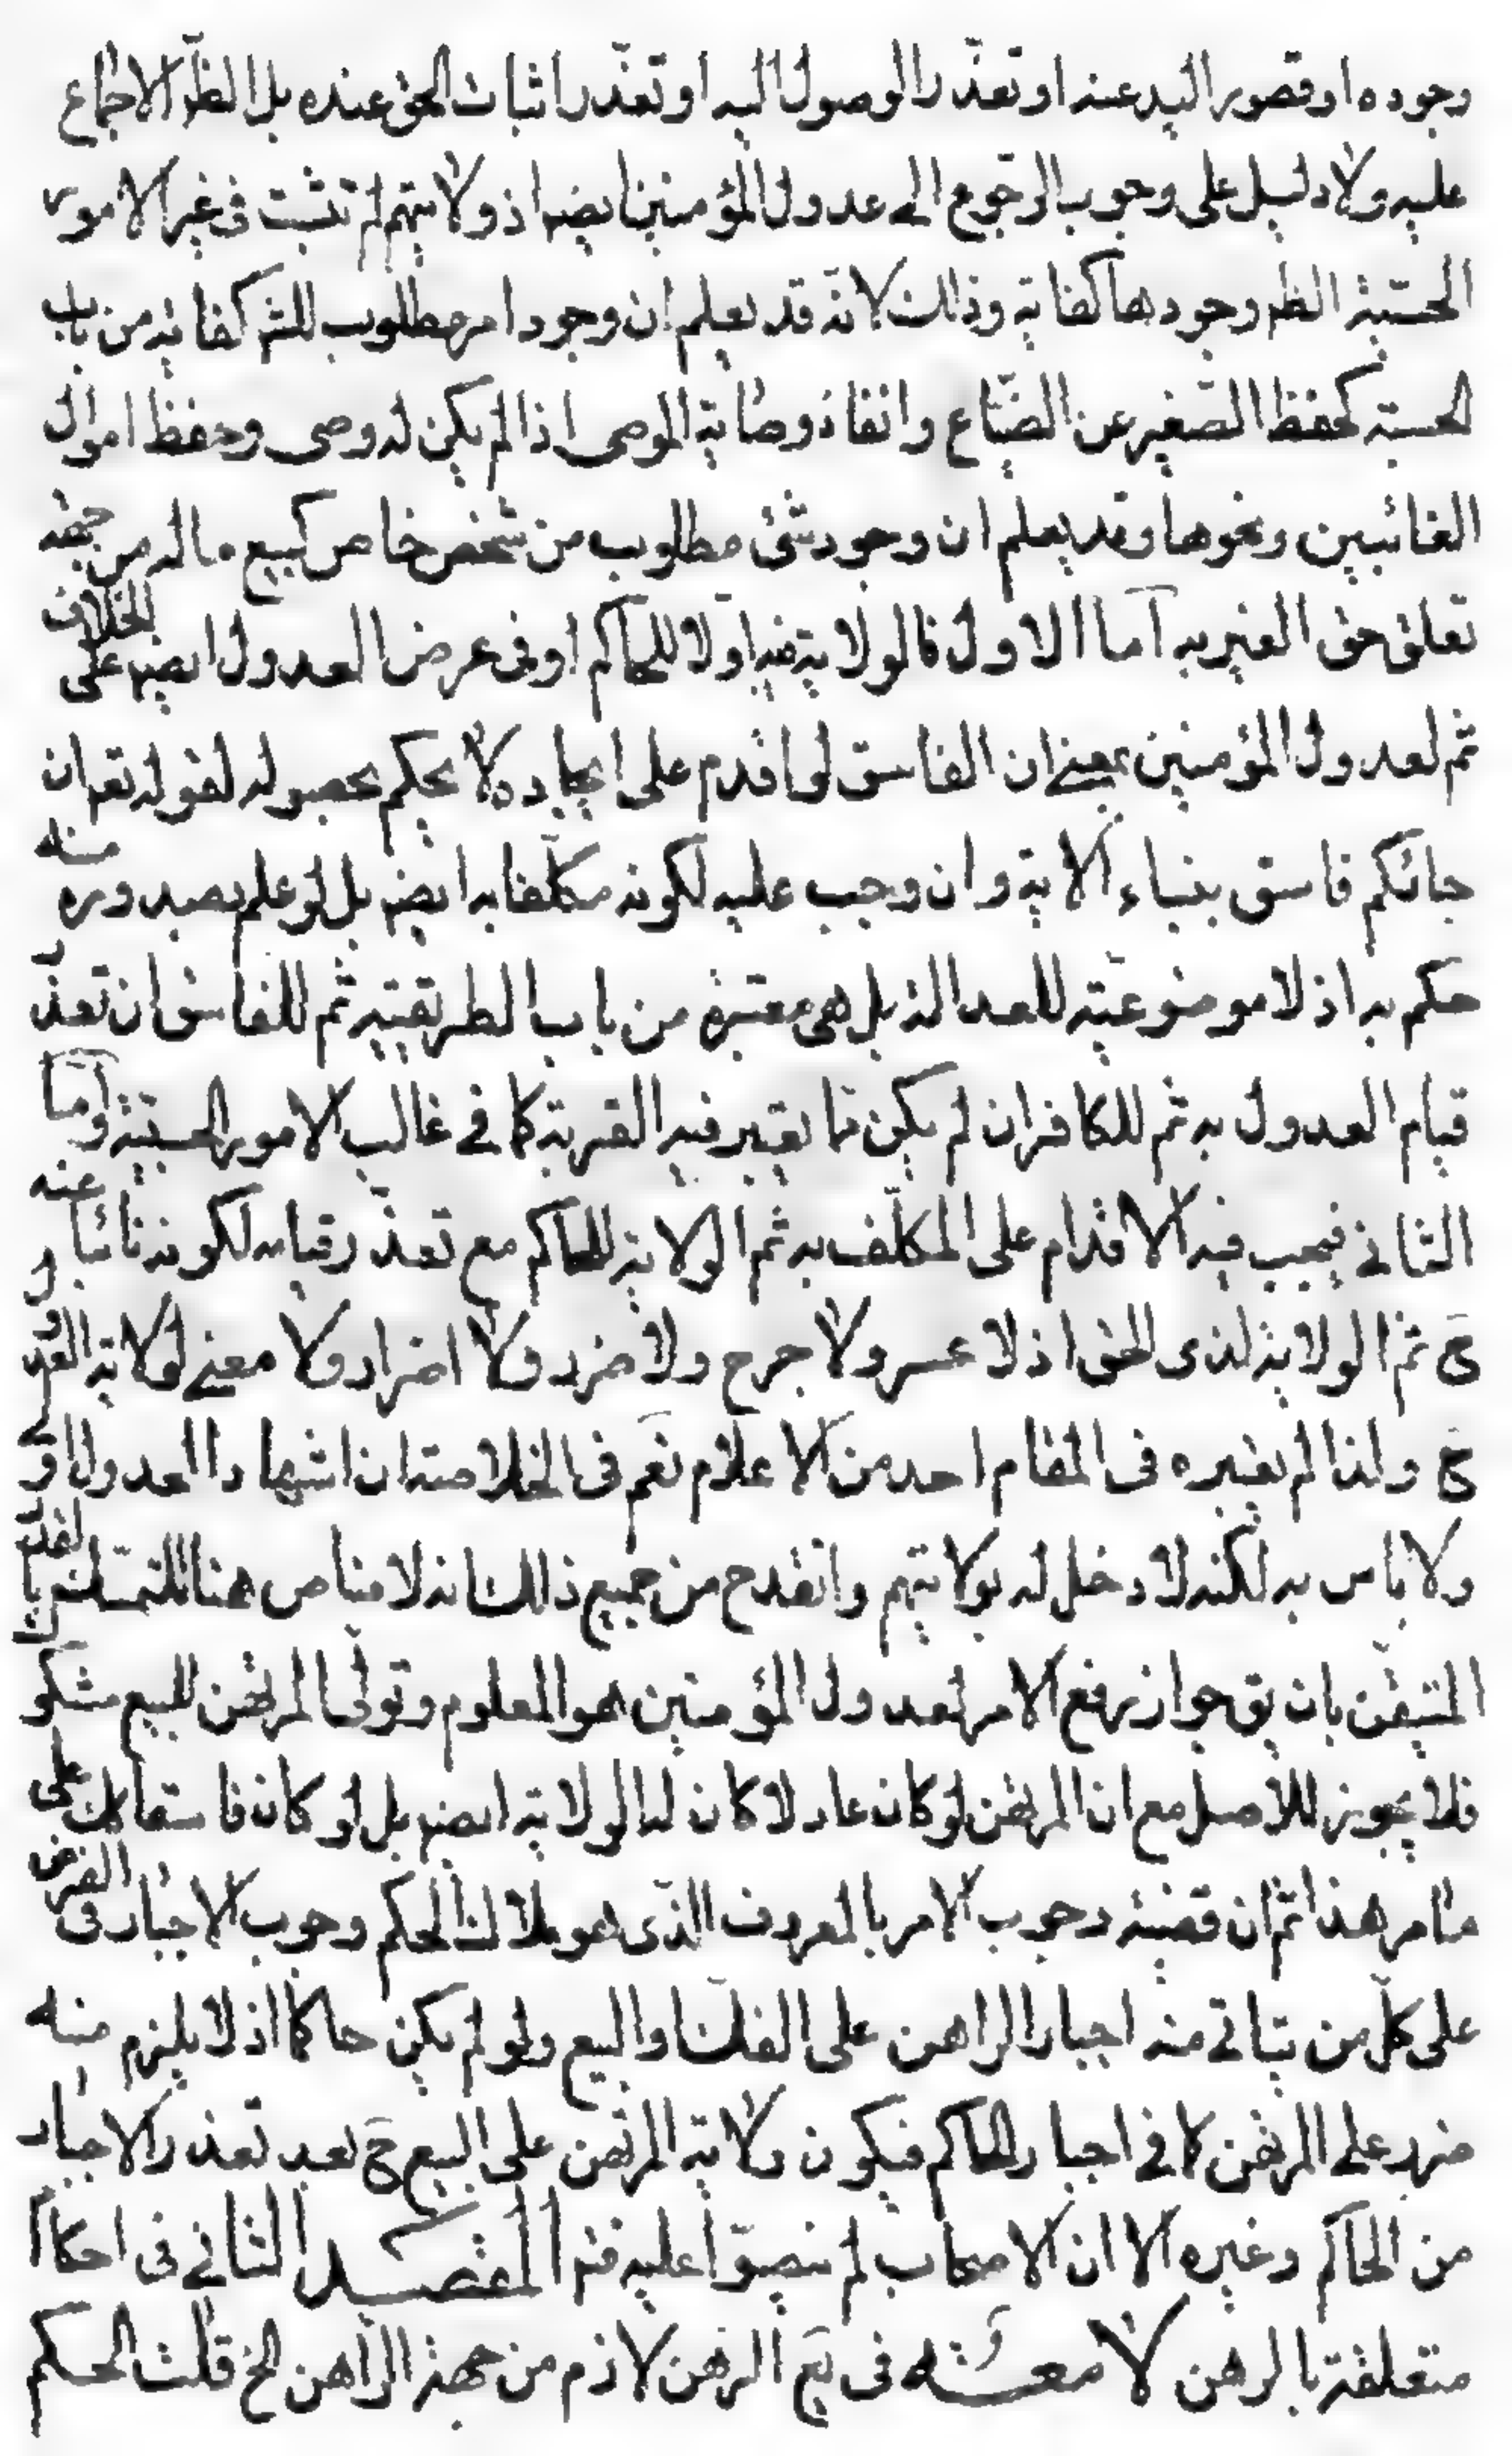 وجوده او قصور اليد عنه او تعذّر الوصول اليه او تعذّر اثبات الحق عنده بل الظّ الاجماع
عليه ولا دليل على وجوب الرّجوع الى عدول المؤمنين ايضا اذ ولايتهم لم تثبت فى غير الامور
الحسبيّة الظم وجودها كفاية وذلك لانّه قد يعلم ان وجود امر مطلوب للشم كفاية من باب
الحسبة كحفظ الصّغير عن الضّياع وانفاذ وصاية الموصى اذا لم يكن له وصى وحفظ اموال
الغائبين ونحوها وقد يعلم ان وجود شئ مطلوب من شخص خاص كبيع ماله من جهة
تعلق حق الغير به امّا الاول فالولاية فيه اولا للحاكم او فى عرض العدول ايضم على الخلاف
ثم لعدول المؤمنين بمعنى ان الفاسق لو اقدم على ايجاده لا يحكم بحصوله لقوله تعم ان
جائكم فاسق بنباء الاية وان وجب عليه لكونه مكلّفا به ايضم بل لو علم بصدوره منه
حكم به اذ لا موضوعيّة للعدالة بل هى معتبرة من باب الطريقيّة ثم للفاسق ان تعذّر
قيام العدول به ثم للكافر ان لم يكن مما يعتبر فيه القربة كما فى غالب الامور الحسبيّة وامّا
الثانى فيجب فيه الاقدام على المكلّف به ثم الولاية للحاكم مع تعذّر قيامه لكونه نائبا عنه
ح ثم الولاية لذى الحق اذ لا عسر ولا حرج ولا ضرر ولا اضرار ولا معنى لولاية العدول
ح ولذا لم يعتبره فى المقام احد من الاعلام نعم فى الخلاصة ان اشهاد العدول اولى
ولا باس به لكنه لا دخل له بولايتهم وانقدح من جميع ذلك انه لا مناص هنا للتمسّك بالقدر
المتيقّن بان يق جواز رفع الامر لعدول المؤمنين هو المعلوم وتولّى المرتهن للبيع مشكوك
فلا يجوز للاصل مع ان المرتهن لو كان عادلا كان له الولاية ايضم بل لو كان فاسقا كك على
ما مر هذا ثم ان قضيّة وجوب الامر بالمعروف الذّى هو ملاك الحكم وجوب الاجبار فى الفرض
على كلّ من يتاتى منه اجبار الراهن على الفك او البيع ولو لم يكن حاكما اذ لا يلزم منه
ضرر على المرتهن كما فى اجبار الحاكم فيكون ولاية المرتهن على البيع ح بعد تعذر الاجبار
من الحاكم وغيره الا ان الاصحاب لم ينصّوا عليه فتم المقصد الثانى فى احكام
متعلقة بالرهن لا معة فى يع الرهن لازم من جهة الراهن الخ قلت الحكم